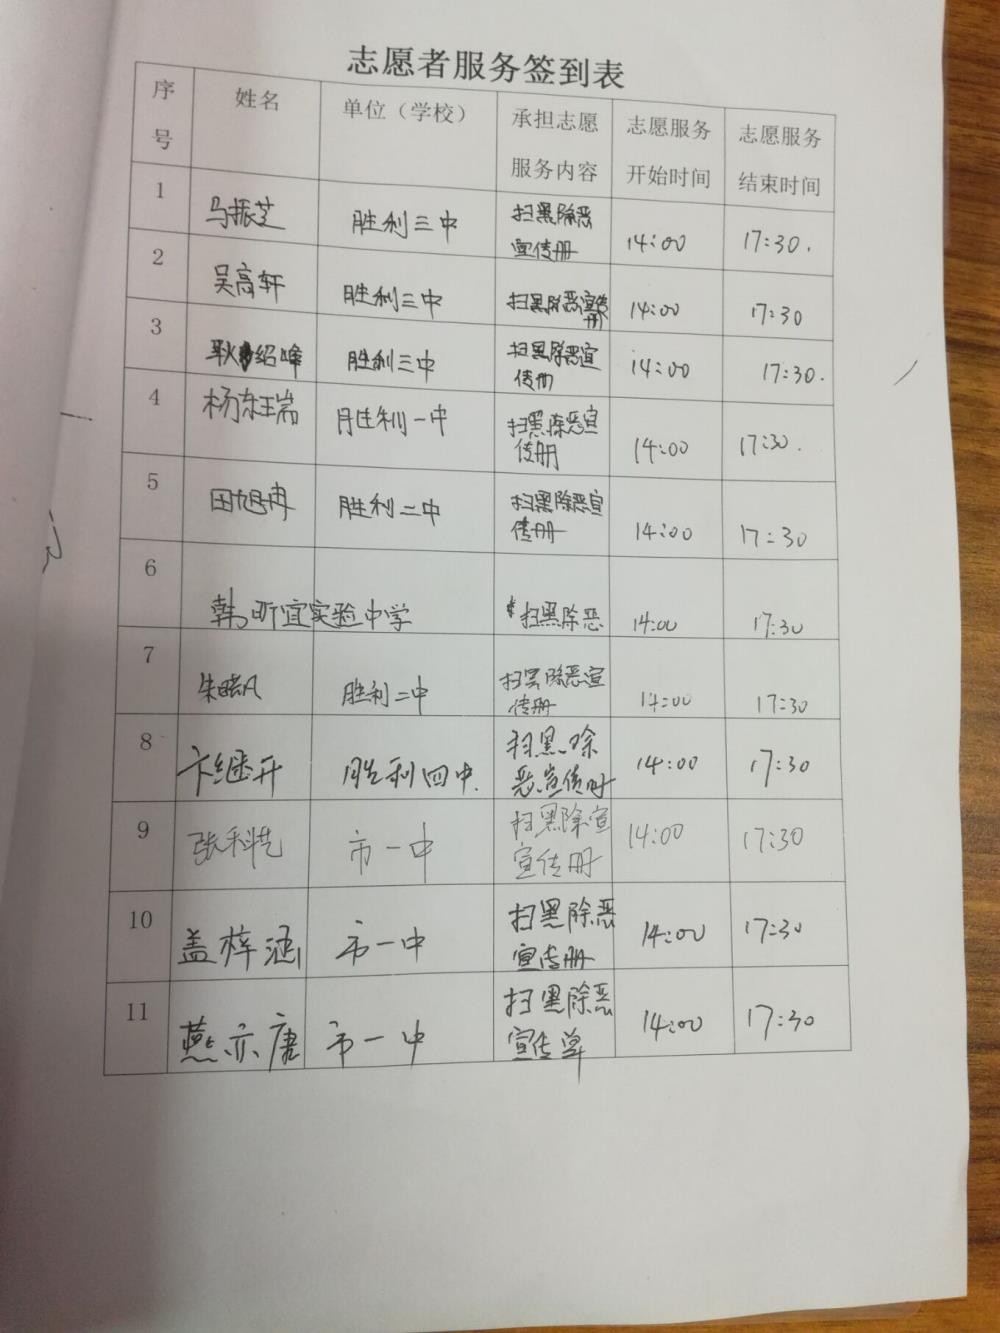 志愿者服务签到表
序号 姓名 单位（学校） 承担志愿服务内容 志愿服务开始时间 志愿服务结束时间
1 马振芝 胜利三中 扫黑除恶宣传册 14:00 17:30.
2 吴高轩 胜利三中 扫黑除恶宣传册 14:00 17:30
3 耿绍峰 胜利三中 扫黑除恶宣传册 14:00 17:30.
4 杨东瑞 胜利一中 扫黑除恶宣传册 14:00 17:30.
5 田旭冉 胜利二中 扫黑除恶宣传册 14:00 17:30
6 韩昕宜 实验中学 扫黑除恶 14:00 17:30
7 朱晓凡 胜利二中 扫黑除恶宣传册 14:00 17:30
8 卞继开 胜利四中. 扫黑除恶宣传册 14:00 17:30
9 张科 市一中 扫黑除宣宣传册 14:00 17:30
10 盖梓涵 市一中 扫黑除恶宣传册 14:00 17:30
11 燕亦唐 市一中 扫黑除恶宣传单 14:00 17:30